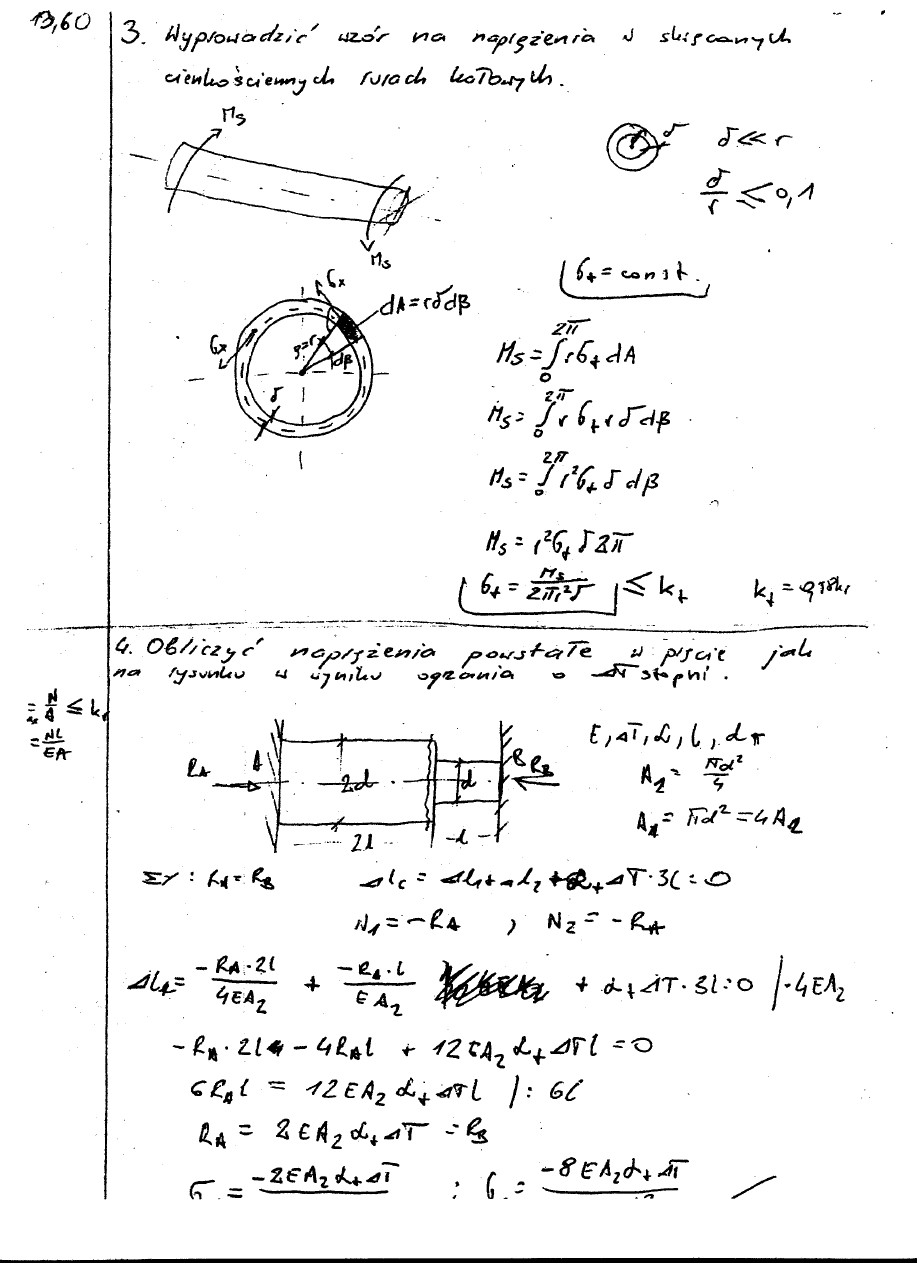 13,60
3. Wyprowadzić wzór na naprężenia w skręcanych
cienkościennych rurach kołowych.
Ms
δ
δ << r
δ/r ≤ 0,1
Ms
σt = const.
σx
dA = rδdβ
σx
ρ=r
dβ
δ
Ms = ∫₀^2π rσt dA
Ms = ∫₀^2π r σt r δ dβ
Ms = ∫₀^2π r²σt δ dβ
Ms = r²σt δ 2π
σt = Ms/2πr²δ ≤ kt
4. Obliczyć naprężenia powstałe w pręcie jak
na rysunku w wyniku ogrzania o ΔT stopni.
= N/A ≤ kr
= Nl/EA
E, ΔT, α, l, d, π
A2 = πd²/4
A1 = πd² = 4A2
RA
A
2d
d
B
RB
2l
l
ΣY : RA = RB
Δlc = Δl1 + Δl2 + αt ΔT·3l = 0
N1 = -RA , N2 = -RA
Δlc = -RA·2l/4EA2 + -RA·l/EA2 + αt ΔT·3l = 0 /·4EA2
-RA·2l - 4RAl + 12EA2 αt ΔTl = 0
6RAl = 12EA2 αt ΔTl /: 6l
RA = 2EA2 αt ΔT = RB
σ = -2EA2 αt ΔT ; σ = -8EA2 αt ΔT